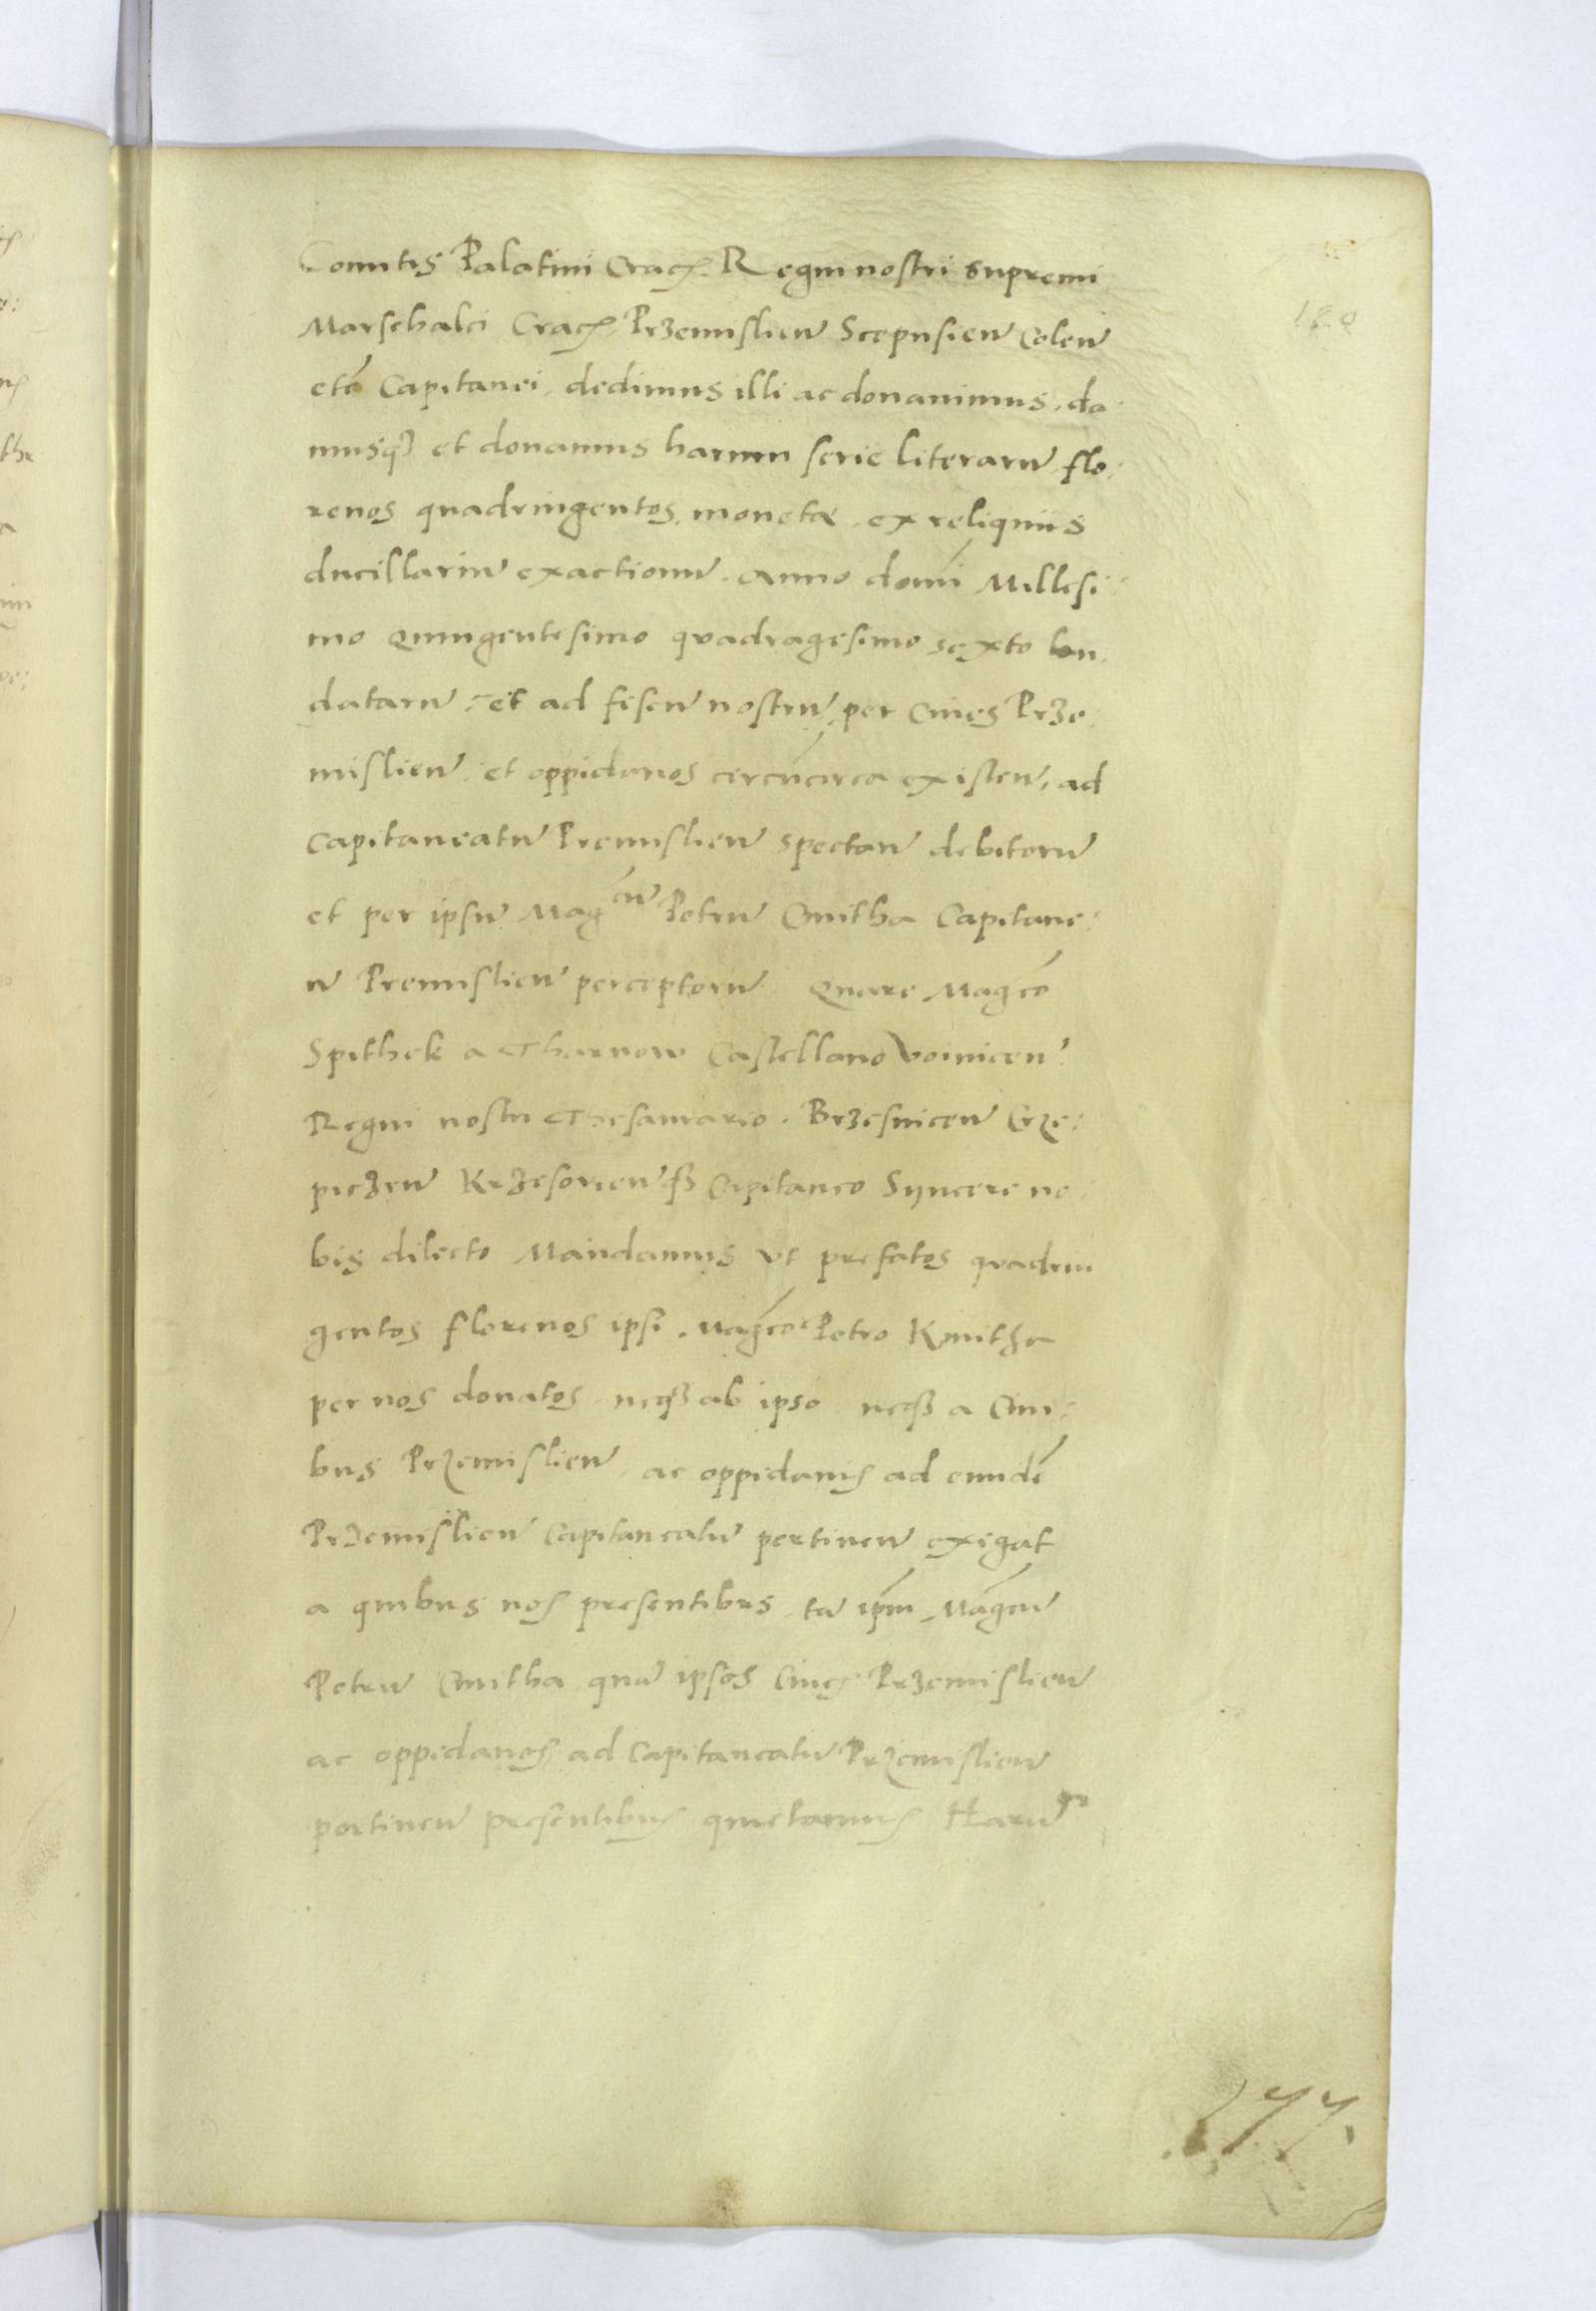 Comitis Palatini Crac. Regni nostri supremi
180
Marschalci Crac. Przemislien Scepusien Colen
etc Capitanei, dedimus illi ac donavimus, da
musq et donamus harum serie literarū, flo:
renos quadringentos, monetæ, ex reliquiis
ducillariū exactionū. anno domi Millesi:
mo Quingentesimo quadragesimo sexto lau:
datarū, et ad fiscū nostrū, per Cives Prze:
mislien. et oppidanos circūcirca existen, ad
Capitaneatū Premislien spectan debitorū
et per ipsū Magcū Petrū Cmitha Capitane:
ū Premislien perceptorū Quare Magco
Spithek a Tharnow Castellano Voinicen
Regni nostri Thesaurario. Brzesnicen Crze:
piczen Krzesovienq Capitaneo Syncere no:
bis dilecto Mandamus vt prefatos quadrin
gentos florenos ipsi. Magco Petro Kmitha
per nos donatos neq ab ipso neq a Civi:
bus Przemislien, ac oppidanis ad eundē
Przemislien Capitaneatū pertinen exigat
a quibus nos presentibus, tā ipm Magcū
Petrū Cmitha quā ipsos Cives Przemislien
ac oppidanos ad Capitaneatū Przemislien
pertinen presentibus quietamus Harū
177.